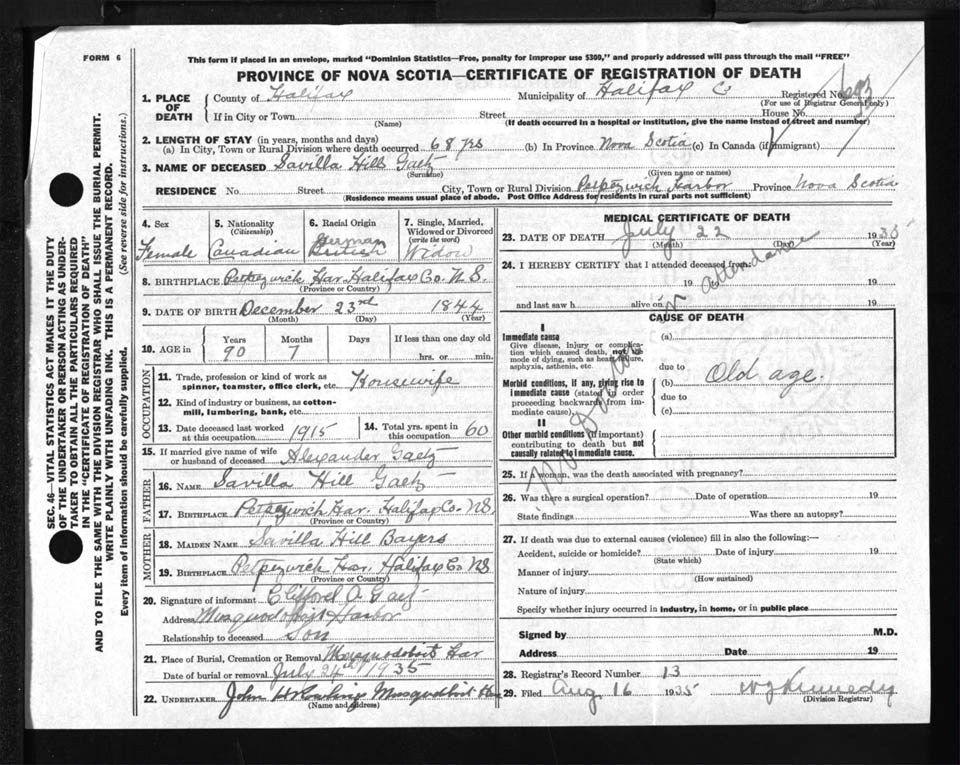 FORM 6
This form if placed in an envelope, marked "Dominion Statistics—Free, penalty for improper use $300," and properly addressed will pass through the mail "FREE"
PROVINCE OF NOVA SCOTIA—CERTIFICATE OF REGISTRATION OF DEATH
SEC. 46—VITAL STATISTICS ACT MAKES IT THE DUTY
OF THE UNDERTAKER OR PERSON ACTING AS UNDER-
TAKER TO OBTAIN ALL THE PARTICULARS REQUIRED
IN THE "CERTIFICATE OF REGISTRATION OF DEATH"
AND TO FILE THE SAME WITH THE DIVISION REGISTRAR WHO SHALL ISSUE THE BURIAL PERMIT.
WRITE PLAINLY WITH UNFADING INK. THIS IS A PERMANENT RECORD.
Every item of information should be carefully supplied. (See reverse side for instructions.)
1. PLACE OF DEATH
County of Halifax Municipality of Halifax Co Registered No.
(For use of Registrar General only)
If in City or Town Street House No.
(Name) (If death occurred in a hospital or institution, give the name instead of street and number)
2. LENGTH OF STAY (in years, months and days)
(a) In City, Town or Rural Division where death occurred 68 yrs (b) In Province Nova Scotia (c) In Canada (if immigrant)
3. NAME OF DECEASED Savilla Hill Gaetz
(Surname) (Given name or names)
RESIDENCE No. Street City, Town or Rural Division Petpezwich Harbor Province Nova Scotia
(Residence means usual place of abode. Post Office Address for residents in rural parts not sufficient)
4. Sex Female
5. Nationality (Citizenship) Canadian
6. Racial Origin German British
7. Single, Married, Widowed or Divorced (write the word) Widow
8. BIRTHPLACE Petpezwich Har. Halifax Co. N.S.
(Province or Country)
9. DATE OF BIRTH December 23rd 1844
(Month) (Day) (Year)
10. AGE in Years 90 Months 7 Days If less than one day old hrs. or min.
OCCUPATION
11. Trade, profession or kind of work as spinner, teamster, office clerk, etc. Housewife
12. Kind of industry or business, as cotton-mill, lumbering, bank, etc.
13. Date deceased last worked at this occupation 1915
14. Total yrs. spent in this occupation 60
15. If married give name of wife or husband of deceased Alexander Gaetz
FATHER
16. NAME Savilla Hill Gaetz
17. BIRTHPLACE Petpezwich Har. Halifax Co. NS.
(Province or Country)
MOTHER
18. MAIDEN NAME Savilla Hill Bayers
19. BIRTHPLACE Petpezwich Har. Halifax Co NS
(Province or Country)
20. Signature of informant Clifford A. Gaetz
Address Musquodoboit Harbor
Relationship to deceased Son
21. Place of Burial, Cremation or Removal Musquodoboit Har
Date of burial or removal July 24th 1935
22. UNDERTAKER John H Musquodoboit Har
(Name and address)
MEDICAL CERTIFICATE OF DEATH
23. DATE OF DEATH July 22 1935
(Month) (Day) (Year)
24. I HEREBY CERTIFY that I attended deceased from
19 to 19
and last saw h alive on 19
No Doctor in attendance
CAUSE OF DEATH
I
Immediate cause
Give disease, injury or complica-
tion which caused death, not the
mode of dying, such as heart failure,
asphyxia, asthenia, etc.
Morbid conditions, if any, giving rise to
immediate cause (stated in order
proceeding backwards from im-
mediate cause).
II
Other morbid conditions (if important)
contributing to death but not
causally related to immediate cause.
(a)
due to
(b) Old age.
due to
(c)
25. If a woman, was the death associated with pregnancy?
26. Was there a surgical operation? Date of operation 19
State findings Was there an autopsy?
27. If death was due to external causes (violence) fill in also the following:—
Accident, suicide or homicide? Date of injury 19
(State which)
Manner of injury
(How sustained)
Nature of injury
Specify whether injury occurred in industry, in home, or in public place
Signed by M.D.
Address Date 19
28. Registrar's Record Number 13
29. Filed Aug. 16 1935 W J Kennedy
(Division Registrar)